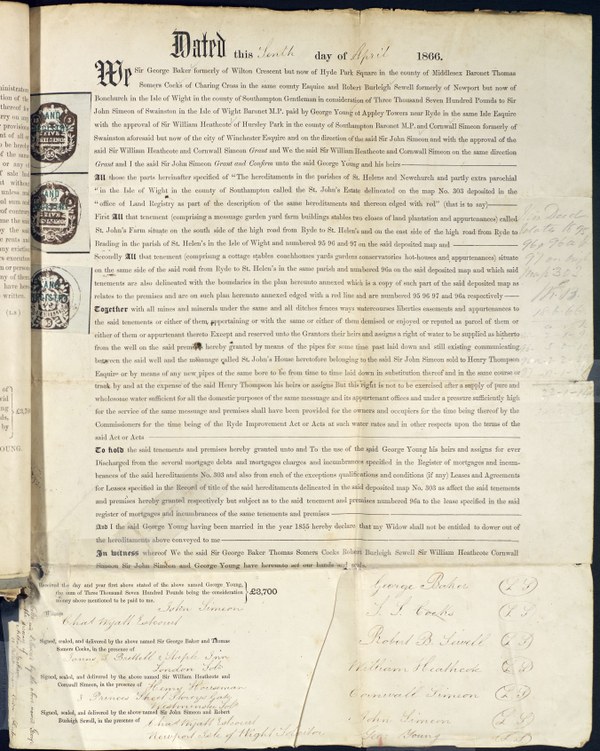 Dated this Tenth day of April 1866.
We Sir George Baker formerly of Wilton Crescent but now of Hyde Park Square in the county of Middlesex Baronet Thomas
Somers Cocks of Charing Cross in the same county Esquire and Robert Burleigh Sewell formerly of Newport but now of
Bonchurch in the Isle of Wight in the county of Southampton Gentleman in consideration of Three Thousand Seven Hundred Pounds to Sir
John Simeon of Swainston in the Isle of Wight Baronet M.P. paid by George Young of Appley Towers near Ryde in the same Isle Esquire
with the approval of Sir William Heathcote of Hursley Park in the county of Southampton Baronet M.P. and Cornwall Simeon formerly of
Swainston aforesaid but now of the city of Winchester Esquire and on the direction of the said Sir John Simeon and with the approval of the
said Sir William Heathcote and Cornwall Simeon Grant and We the said Sir William Heathcote and Cornwall Simeon on the same direction
Grant and I the said Sir John Simeon Grant and Confirm unto the said George Young and his heirs
All those the parts hereinafter specified of "The hereditaments in the parishes of St. Helens and Newchurch and partly extra parochial
"in the Isle of Wight in the county of Southampton called the St. John's Estate delineated on the map No. 303 deposited in the
"office of Land Registry as part of the description of the same hereditaments and thereon edged with red" (that is to say)
First All that tenement (comprising a messuage garden yard farm buildings stables two closes of land plantation and appurtenances) called
St. John's Farm situate on the south side of the high road from Ryde to St. Helen's and on the east side of the high road from Ryde to
Brading in the parish of St. Helen's in the Isle of Wight and numbered 95 96 and 97 on the said deposited map and
Secondly All that tenement (comprising a cottage stables coachhouses yards gardens conservatories hot-houses and appurtenances) situate
on the same side of the said road from Ryde to St. Helen's in the same parish and numbered 96a on the said deposited map and which said
tenements are also delineated with the boundaries in the plan hereunto annexed which is a copy of such part of the said deposited map as
relates to the premises and are on such plan hereunto annexed edged with a red line and are numbered 95 96 97 and 96a respectively
Together with all mines and minerals under the same and all ditches fences ways watercourses liberties easements and appurtenances to
the said tenements or either of them appertaining or with the same or either of them demised or enjoyed or reputed as parcel of them or
either of them or appurtenant thereto Except and reserved unto the Grantors their heirs and assigns a right of water to be supplied as hitherto
from the well on the said premises hereby granted by means of the pipes for some time past laid down and still existing communicating
between the said well and the messuage called St. John's House heretofore belonging to the said Sir John Simeon sold to Henry Thompson
Esquire or by means of any new pipes of the same bore to be from time to time laid down in substitution thereof and in the same course or
track by and at the expense of the said Henry Thompson his heirs or assigns But this right is not to be exercised after a supply of pure and
wholesome water sufficient for all the domestic purposes of the same messuage and its appurtenant offices and under a pressure sufficiently high
for the service of the same messuage and premises shall have been provided for the owners and occupiers for the time being thereof by the
Commissioners for the time being of the Ryde Improvement Act or Acts at such water rates and in other respects upon the terms of the
said Act or Acts
To hold the said tenements and premises hereby granted unto and To the use of the said George Young his heirs and assigns for ever
Discharged from the several mortgage debts and mortgages charges and incumbrances specified in the Register of mortgages and incum-
brances of the said hereditaments No. 303 and also from such of the exceptions qualifications and conditions (if any) Leases and Agreements
for Leases specified in the Record of title of the said hereditaments delineated in the said deposited map No. 303 as affect the said tenements
and premises hereby granted respectively but subject as to the said tenement and premises numbered 96a to the lease specified in the said
register of mortgages and incumbrances of the same tenements and premises
And I the said George Young having been married in the year 1855 hereby declare that my Widow shall not be entitled to dower out of
the hereditaments above conveyed to me
In witness whereof We the said Sir George Baker Thomas Somers Cocks Robert Burleigh Sewell Sir William Heathcote Cornwall
Simeon Sir John Simeon and George Young have hereunto set our hands and seals
Received the day and year first above stated of the above named George Young,
the sum of Three Thousand Seven Hundred Pounds being the consideration
money above mentioned to be paid to me.
£3,700
John Simeon
Witness
Chas Wyatt Estcourt
Signed, sealed, and delivered by the above named Sir George Baker and Thomas
Somers Cocks, in the presence of
London
Signed, sealed, and delivered by the above named Sir William Heathcote and
Cornwall Simeon, in the presence of
Henry
Signed, sealed, and delivered by the above named Sir John Simeon and Robert
Burleigh Sewell, in the presence of
Chas Wyatt Estcourt
Newport Isle of Wight Solicitor
George Baker (L S)
T. S. Cocks (L S)
Robert B Sewell (L S)
William Heathcote (L S)
Cornwall Simeon (L S)
John Simeon (L S)
Geo Young (L S)